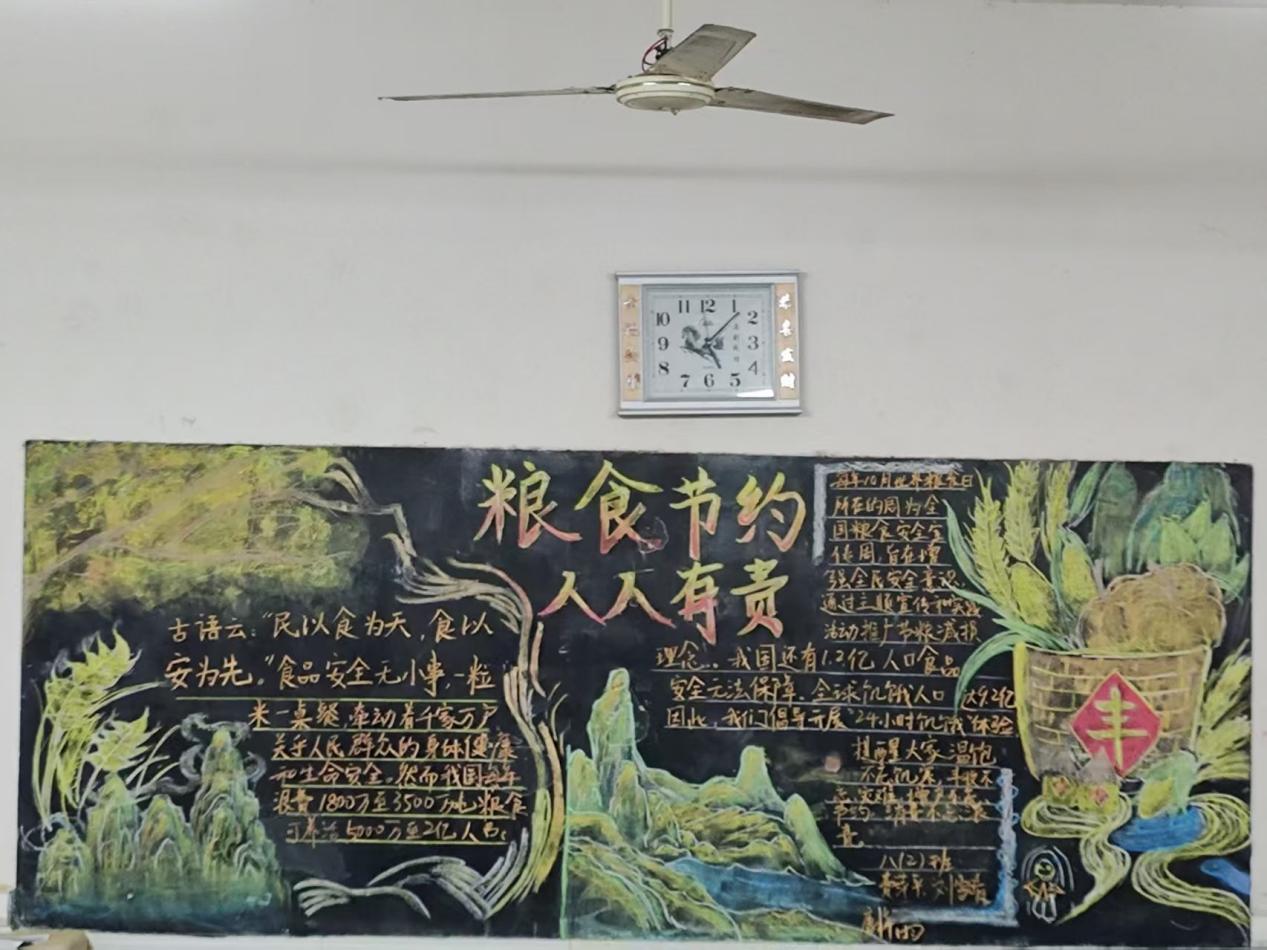 11 12 1
10 2
9 3
8 4
7 6 5
恭喜发财
粮食节约
人人有责
古语云:“民以食为天,食以
安为先。”食品安全无小事,一粒
米一桌餐,牵动着千家万户
关乎人民群众的身体健康
和生命安全。然而我国每年
浪费1800万至3500万吨粮食
可养活5000万至2亿人
每年10月世界粮食日
所在的周为全
国粮食安全宣
传周,旨在增
强全民安全意识,
通过主题宣传和实践
活动推广节粮减损
理念... 我国还有1.2亿人口食品
安全无法保障。全球饥饿人口达9.2亿
因此,我们倡导开展“24小时饥饿”体验
提醒大家温饱
不忘饥寒,丰收不
忘灾难,增产不忘
节约,消费不忘浪
费
八(2)班
丰